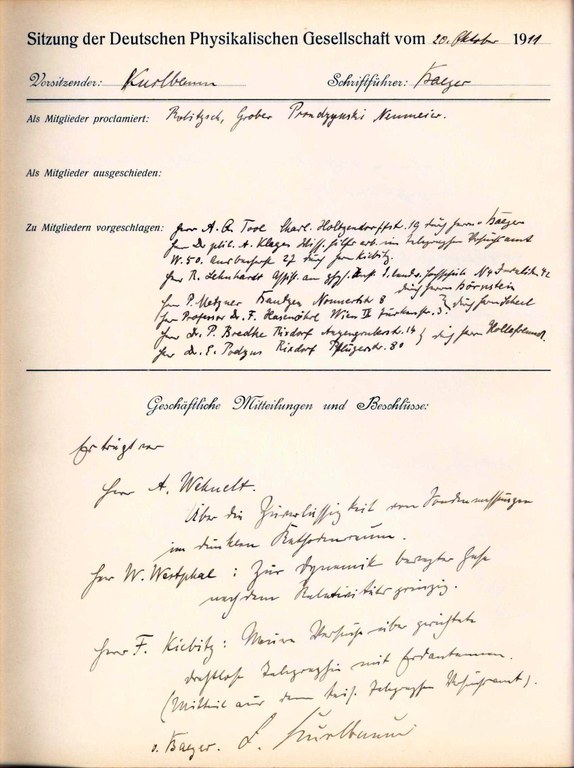 Sitzung der Deutschen Physikalischen Gesellschaft vom 20. Oktober 1911
Vorsitzender: Kurlbaum Schriftführer: Baeyer
Als Mitglieder proclamiert: Grober Prondzynski Neumeier.
Als Mitglieder ausgeschieden:
Zu Mitgliedern vorgeschlagen: Herr A. Q. Tool Charl. Holtzendorffstr. 19 durch Herrn v Baeyer
Herr Dr phil. A. Klages Hilfsarb. im Telegraphen Versuchsamt
W. 50. 27 durch Herrn Kiebitz.
Herr R. Lehnhardt Assist. am phys. Inst. d. landw. Hochschule N 4 42
durch Herrn Börnstein
Herr P. Metzner Bautzen 8
Herr Professor Dr. F. Hasenöhrl Wien IX Türkenstr. 3. } durch Herrn Scheel
Herr Dr. P. Bredke Rixdorf 14
Herr Dr. E. Rixdorf Pflügerstr. 80 } durch Herrn
Geschäftliche Mitteilungen und Beschlüsse:
Es trägt vor
Herr A. Wehnelt.
Über die Zuverlässigkeit von Sondenmessungen
im dunklen Kathodenraum.
Herr W. Westphal : Zur Dynamik bewegter Gase
nach dem Relativitätsprinzip.
Herr F. Kiebitz : Neuere Versuche über gerichtete
drahtlose Telegraphie mit Erdantennen.
(Mitteil. aus dem Kais. Telegraphen Versuchsamt).
v. Baeyer. F. Kurlbaum